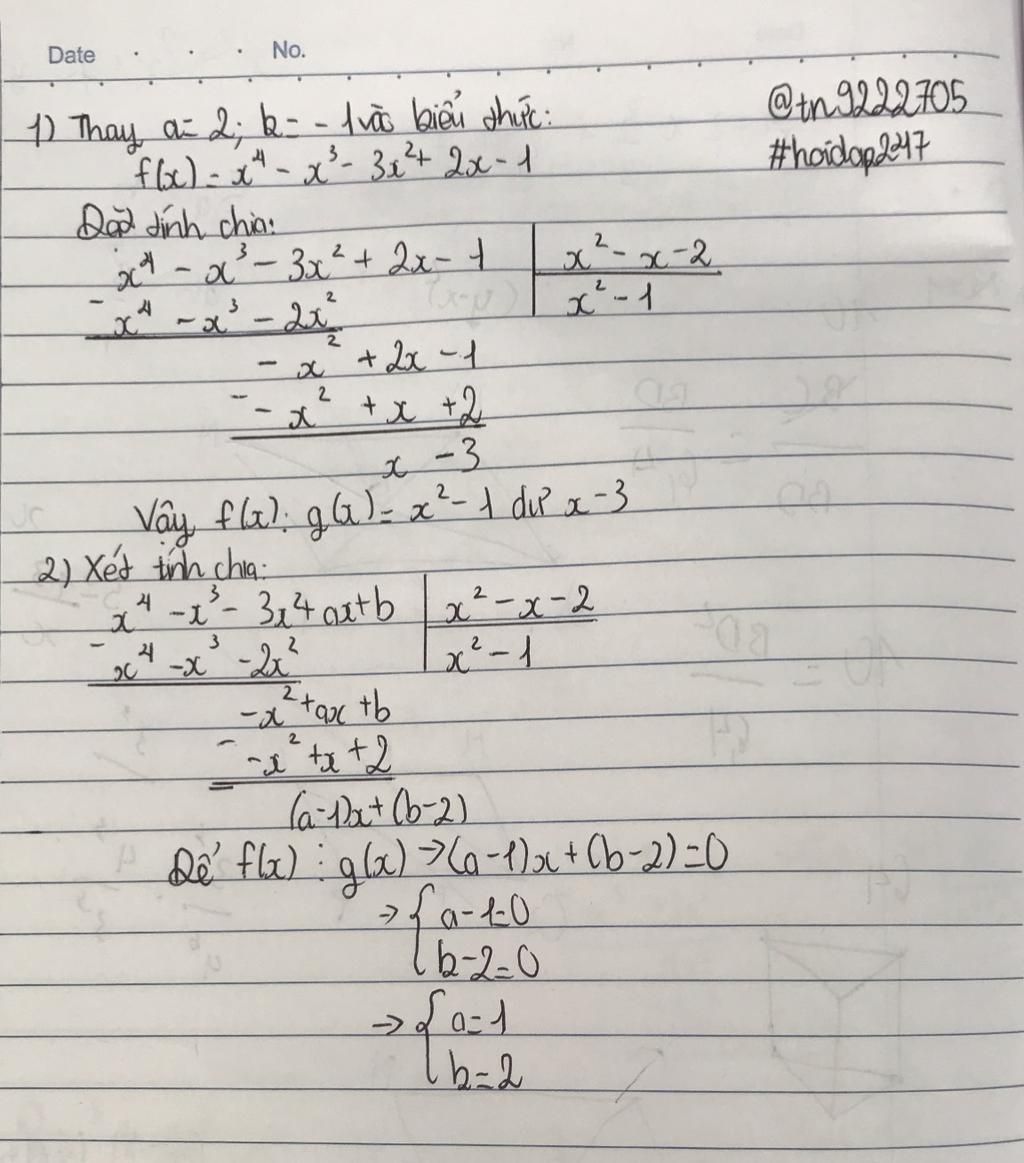 Date . . . No.
1) Thay a= 2; b= -1 vào biểu thức:
@tn9222705
f(x) = x⁴ - x³ - 3x² + 2x - 1
#hoidap247
Đặt tính chia:
x⁴ - x³ - 3x² + 2x - 1 | x² - x - 2
- x⁴ - x³ - 2x² | x² - 1
- x² + 2x - 1
- - x² + x + 2
x - 3
Vậy f(x) : g(x) = x² - 1 dư x - 3
2) Xét tính chia:
x⁴ - x³ - 3x² + ax + b | x² - x - 2
- x⁴ - x³ - 2x² | x² - 1
- x² + ax + b
- - x² + x + 2
(a-1)x + (b-2)
Để f(x) ⋮ g(x) → (a-1)x + (b-2) = 0
→ { a - 1 = 0
b - 2 = 0
→ { a = 1
b = 2